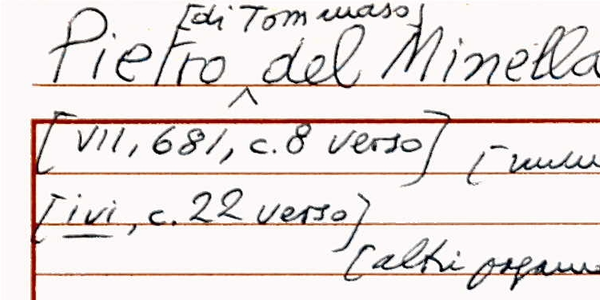 [di Tommaso]
Pietro del Minella
[VII, 681, c. 8 verso]
[ivi, c. 22 verso]
[altri